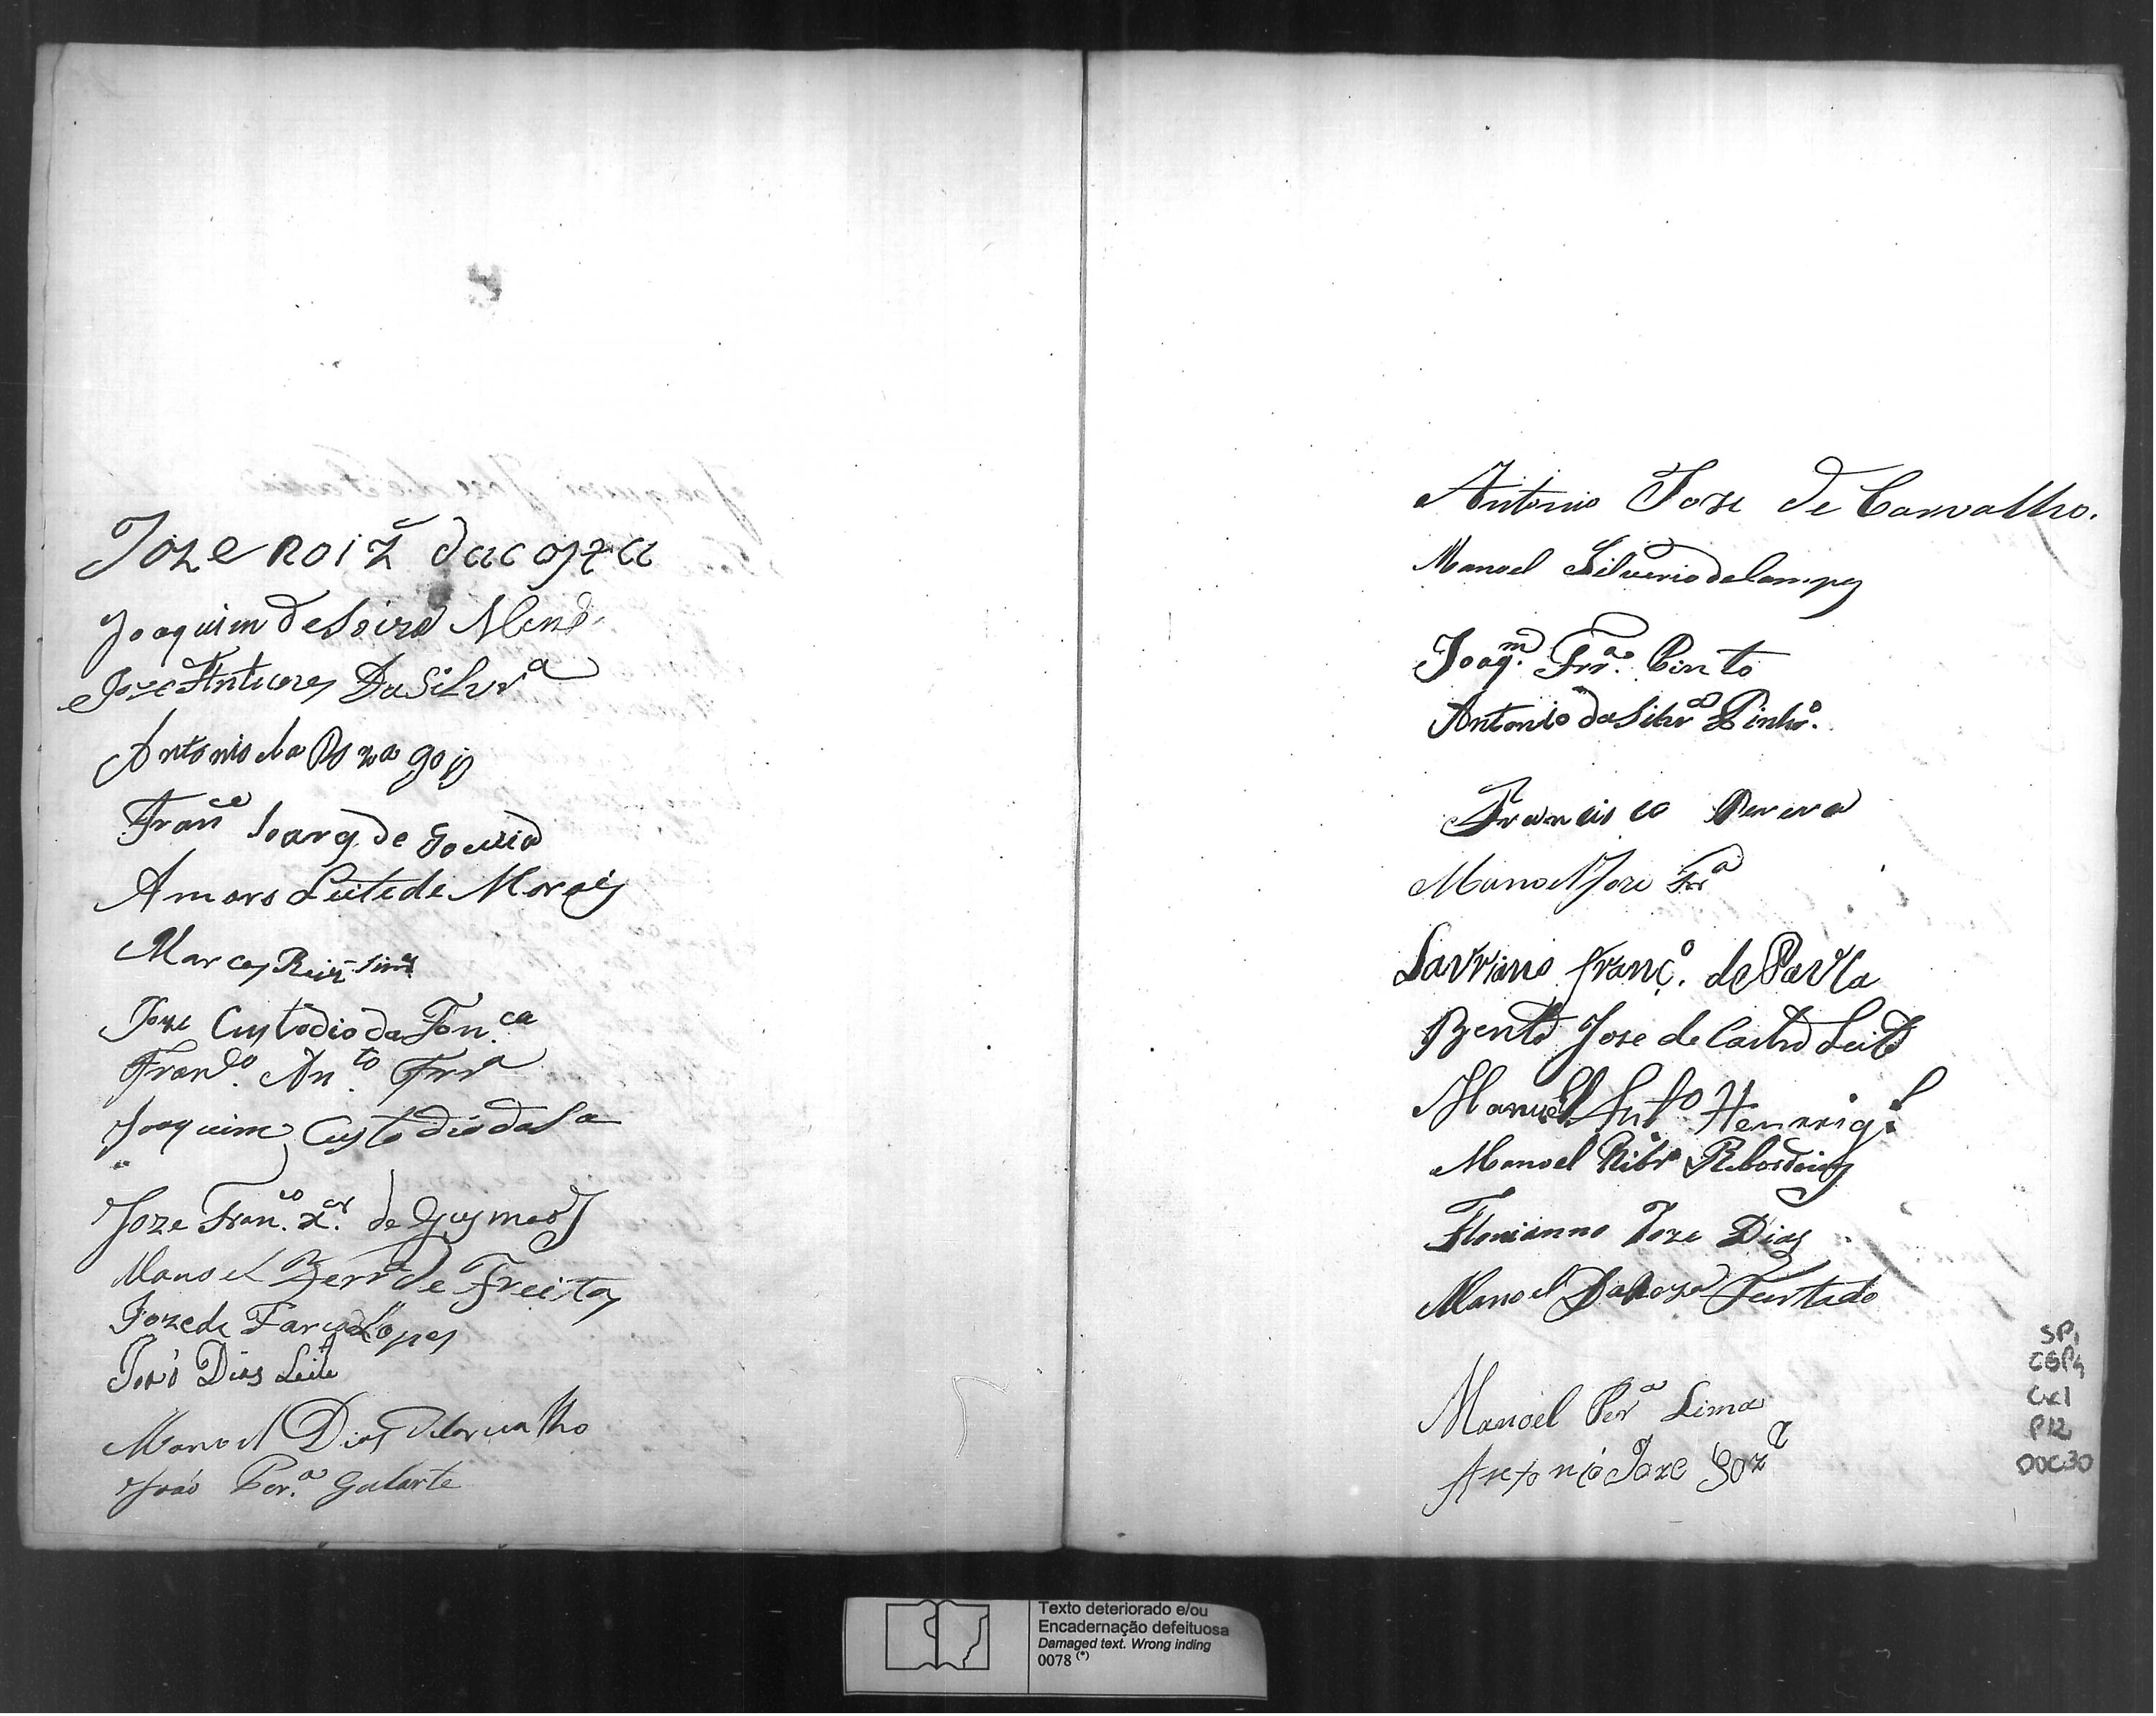 Joze Roiz da costa
Joaquim de Soiza Mend.
Joze Antunes Da Silvra
Antonio da Roza
Franco Soares de Gouvia
Amaro Leite de Morais
Marcos Roiz
Joze Custodio da Fonca
Franco. Anto. Frra
Joaquim Custodio da Sa
Joze Franco. xer. de
Manoel Bezerra de Freitas
Joze de Faria Lopes
Dias Leite
Manoel Dias de Carvalho
João Pera. Gularte
Antonio Joze de Carvalho.
Manoel Silverio de Campos
Joaqm. Frra. Pinto
Antonio da Silva Pinho.
Francisco Perera
Manoel Joze Frra
Lavriano Franco. de Pavla
Bento Joze de Castro Leite
Manuel Anto Henriq.
Manoel Ribro
Florianno Joze Dias
Manoel Da Roza Furtado
Manoel Pera Lima
Antonio Joze
SP,
CGP,
Cx1
P12
DOC30
Texto deteriorado e/ou
Encadernação defeituosa
Damaged text. Wrong inding
0078 (*)